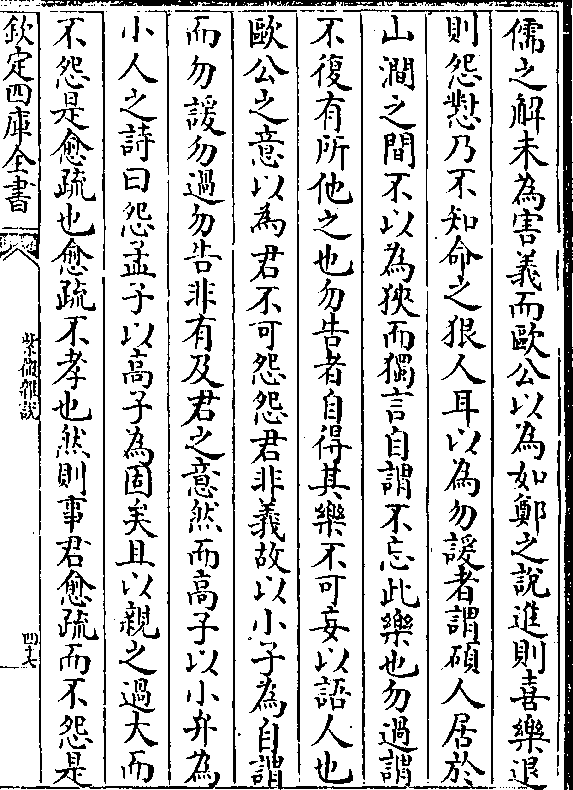 儒之解未為害義而歐公以為如鄭之說進則喜樂退
則怨懟乃不知命之狠人耳以為勿諼者謂碩人居於
山澗之間不以為狹而獨言自謂不忘此樂也勿過謂
不復有所他之也勿告者自得其樂不可妄以語人也
歐公之意以為君不可怨怨君非義故以小子為自謂
而勿諼勿過勿告非有及君之意然而高子以小弁為
小人之詩曰怨孟子以高子為固矣且以親之過大而
不怨是愈疏也愈疏不孝也然則事君愈疏而不怨是
欽定四庫全書
紫微雜說
四十七